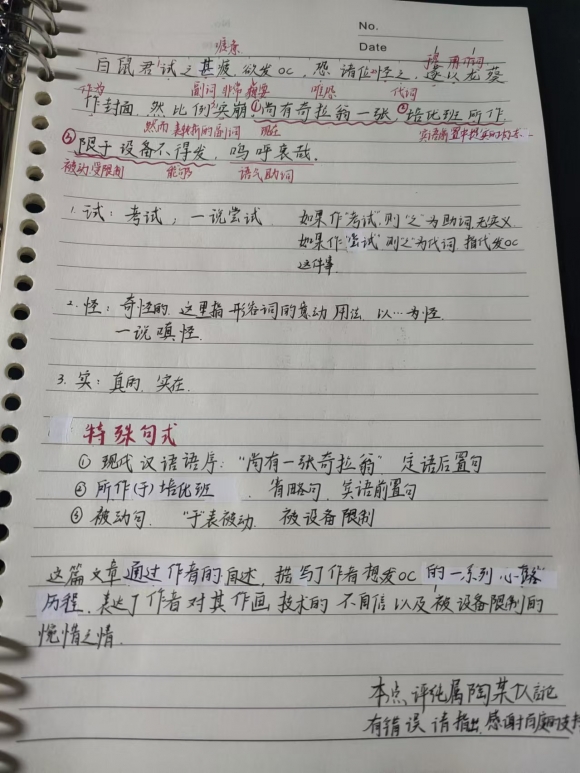 No.
Date
疲惫
语 用作
白鼠君¹试之甚疲,欲发oc,恐诸位²怪之,遂以龙葵
作为 副词 非常 想要 恐怕 代词
作封面,然比例³实崩,①尚有奇拉翁一张,②培优班所作
然而 表转折的副词 现在
③限于设备不得发,呜呼哀哉.
被动 受限制 能够 语气助词
1.试:考试;一说尝试. 如果作"考试"则"之"为助词,无实义
如果作"尝试"则"之"为代词,指代发OC
这件事.
2.怪:奇怪的,这里指形容词的意动用法,以…为怪.
一说嗔怪.
3.实:真的,实在.
特殊句式
① 现代汉语语序:"尚有一张奇拉翁" 定语后置句
② 所作(于)培优班 . 省略句,宾语前置句
③ 被动句. "于"表被动. 被设备限制
这篇文章通过作者的自述,描写了作者想发OC的一系列心路
历程,表达了作者对其作画技术的不自信以及被设备限制的
惋惜之情.
本点评化属陶某
有错误请指出,感谢百度的支持